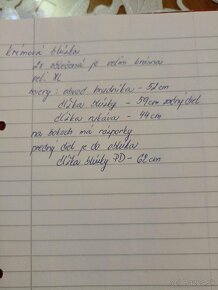 krémová blúzka
2x oblečená je veľmi krásna
veľ. XL
miery: obvod hrudníka - 52cm
dĺžka blúzky - 59cm zadný diel
dĺžka rukáva - 44cm
na bokoch má rázporky
predný diel je do oblúka
dĺžka blúzky PD - 62cm